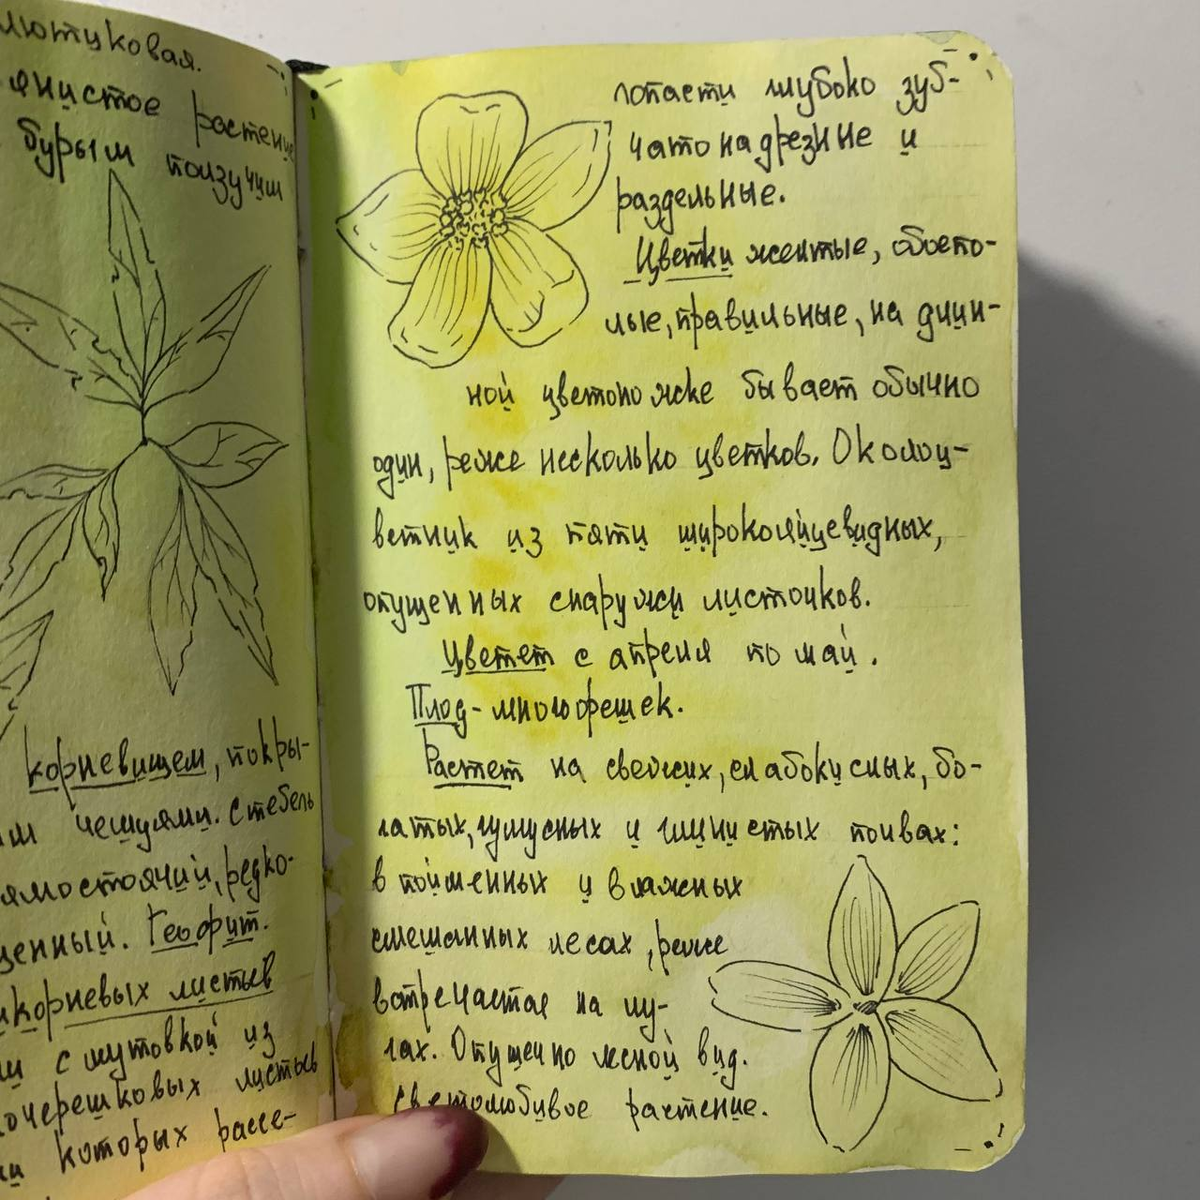 лютиковая.
янистое растение
бурым ползучим
корневищем, покры-
им чешуями. Стебель
ямостоячий, редко-
щенный. Геофит.
икорневых листьев
ли с мутовкой из
очерешковых листьев
ли которых рассе-
лопасти глубоко зуб-
чато надрезные и
раздельные.
Цветки желтые, обоепо-
лые, правильные, на длин-
ной цветоножке бывает обычно
один, реже несколько цветков. Околоц-
ветник из пяти широкояйцевидных,
опущенных снаружи листочков.
Цветет с апреля по май.
Плод - многорешек.
Растет на свежих, слабокислых, бо-
гатых, гумусных и глинистых почвах:
в пойменных и влажных
смешанных лесах, реже
встречается на лу-
гах. Опушечно лесной вид.
Светолюбивое растение.